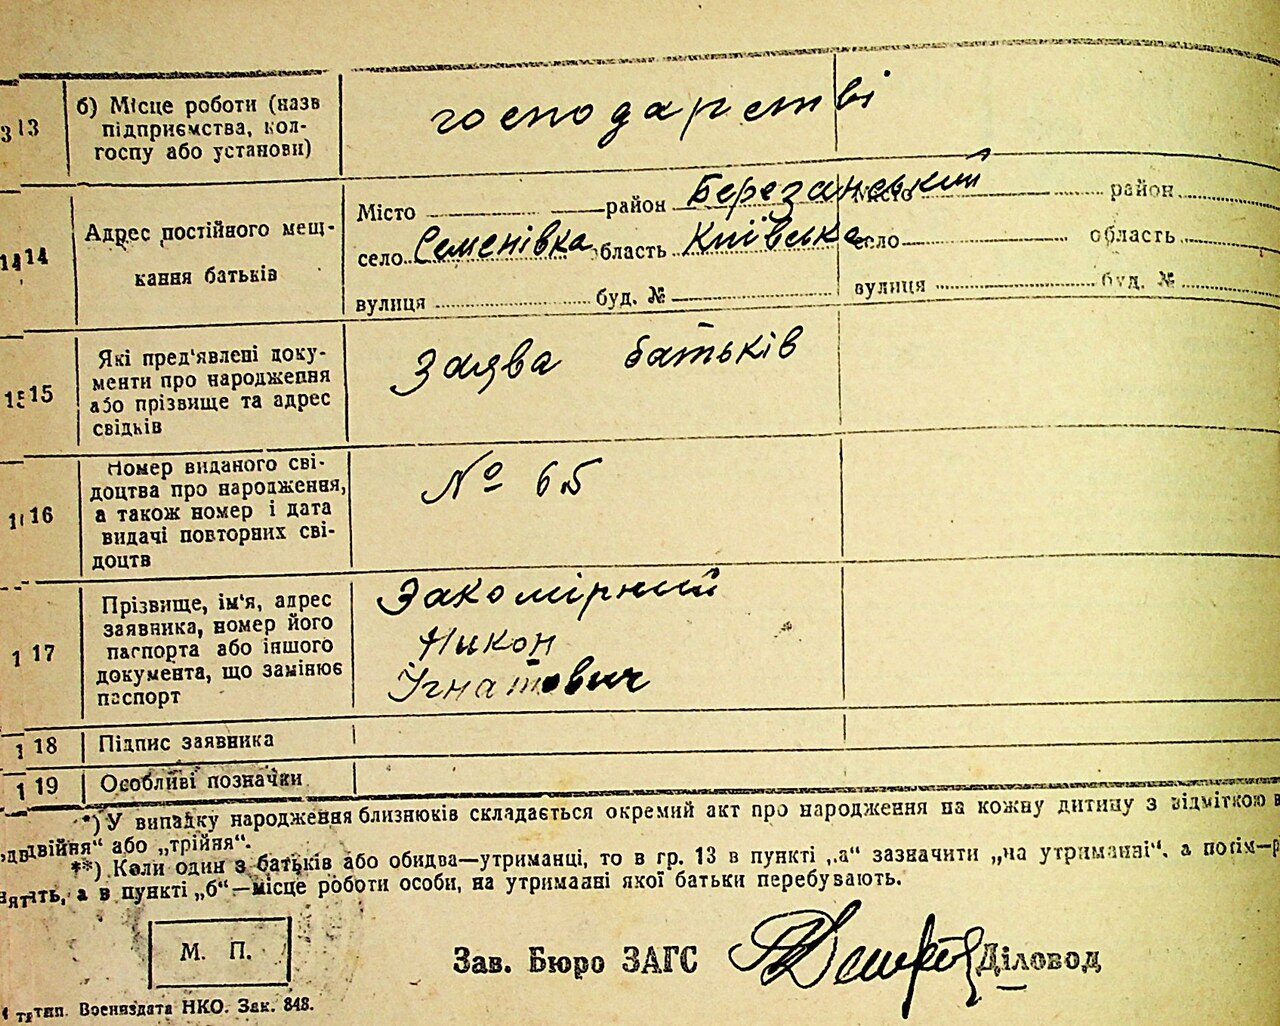 13 б) Місце роботи (назв
підприємства, кол-
госпу або установи)
господарстві
14 Адрес постійного меш-
кання батьків
Місто район Березанський Місто район
село Семенівка область Київська село область
вулиця буд. № вулиця буд. №
15 Які пред'явлені доку-
менти про народження
або прізвище та адрес
свідків
Заява батьків
16 Номер виданого сві-
доцтва про народження,
а також номер і дата
видачі повторних сві-
доцтв
№ 65
17 Прізвище, ім'я, адрес
заявника, номер його
паспорта або іншого
документа, що замінює
паспорт
Закомірний
Никон
Ігнатович
18 Підпис заявника
19 Особливі позначки
*) У випадку народження близнюків складається окремий акт про народження на кожну дитину з відміткою
двійня" або „трійня".
**) Коли один з батьків або обидва—утриманці, то в гр. 13 в пункті „а" зазначити „на утриманні", а потім—
а в пункті „б"—місце роботи особи, на утриманні якої батьки перебувають.
М. П.
Зав. Бюро ЗАГС Діловод
тип. Воениздата НКО. Зак. 848.